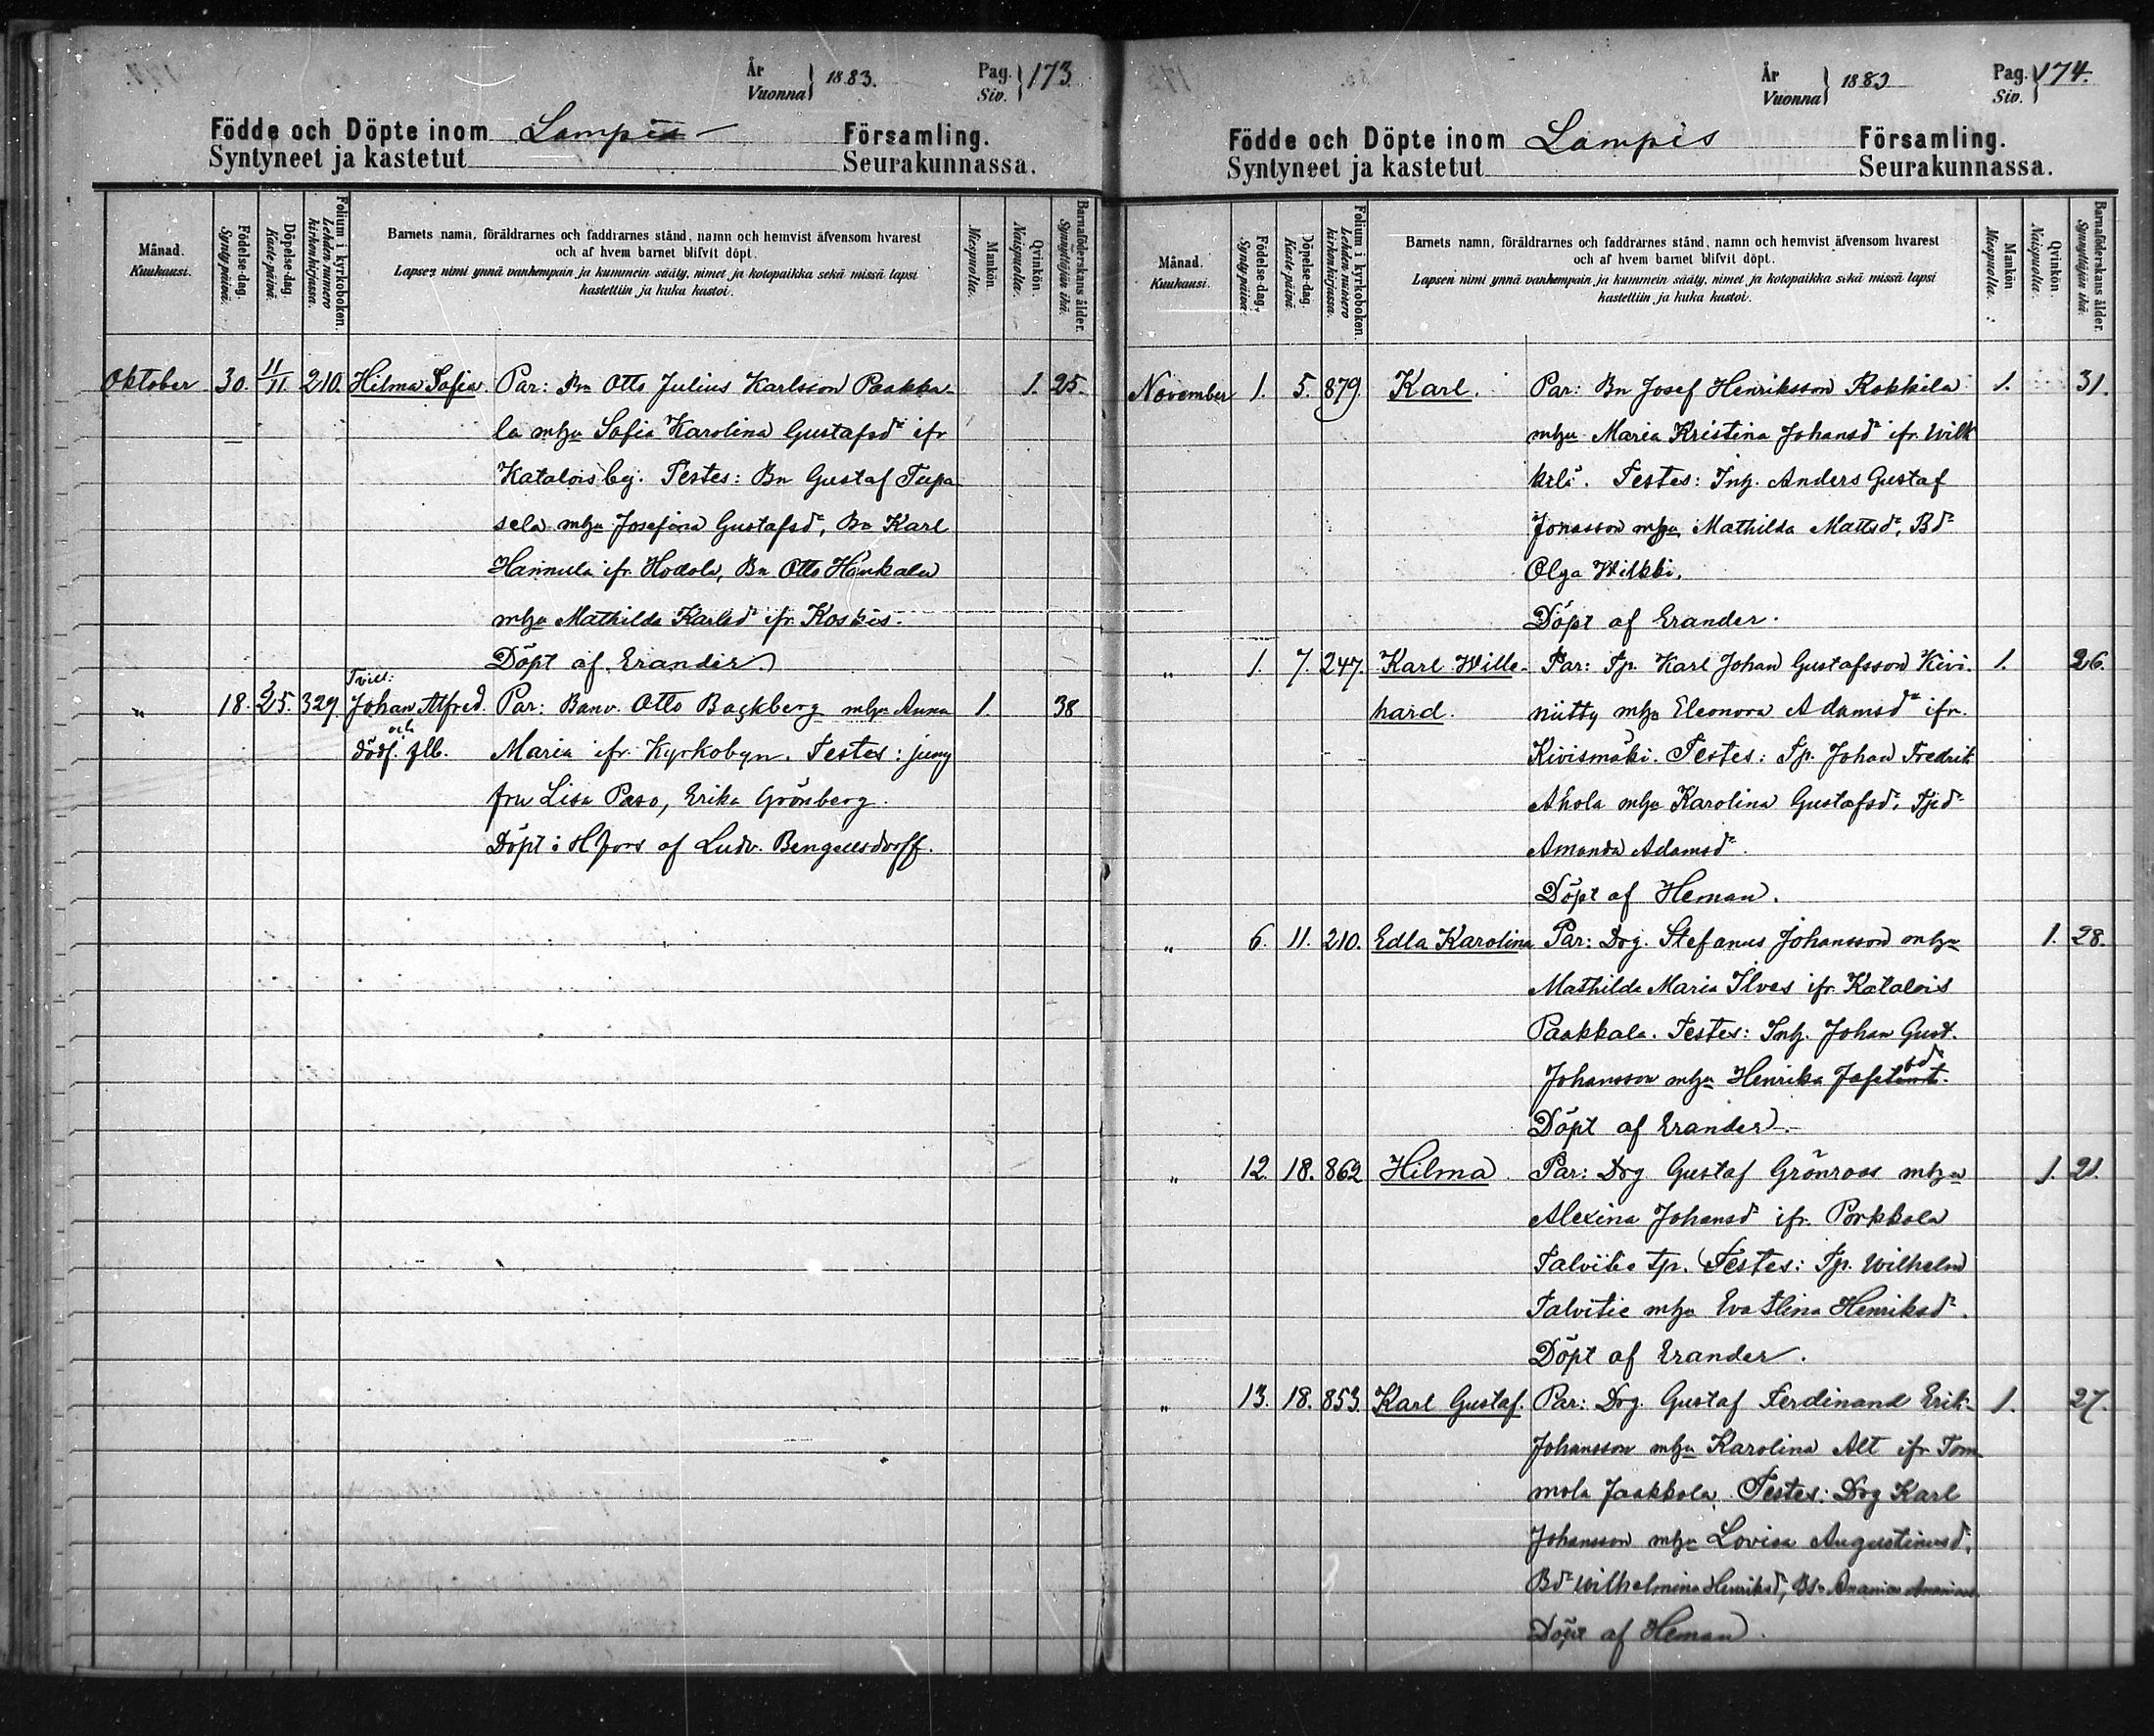 År
Vuonna } 1883.
Pag.
Siv. } 173
Födde och Döpte inom Lampis Församling.
Syntyneet ja kastetut Seurakunnassa.
Månad.
Kuukausi.
Födelse-dag.
Syntypäivä.
Döpelse-dag.
Kaste-päivä.
Folium i kyrkoboken.
Lehden numero kirkonkirjassa.
Barnets namn, föräldrarnes och faddrarnes stånd, namn och hemvist äfvensom hvarest
och af hvem barnet blifvit döpt.
Lapsen nimi ynnä vanhempain ja kummein sääty, nimet ja kotopaikka sekä missä lapsi
kastettiin ja kuka kastoi.
Mankön
Miespuolia.
Qvinkön.
Naispuolia.
Barnaföderskans ålder.
Synnyttäjän ikä.
Oktober 30. 11/11 210. Hilma Sofia. Par: Bn Otto Julius Karlsson Paakka- 1. 25.
la mhu Sofia Karolina Gustafsdr ifr
Katalois by. Testes: Bn Gustaf Tupa
sela mhu Josefina Gustafsdr, Bn Karl
Hannula ifr Hollola, Bn Otto Haukala
mhu Mathilda Karlsdr ifr Koskis.
Döpt af Erander
Tvill:
" 18. 25. 329. Johan Alfred. Par: Banv. Otto Backberg mhu Anna 1. 38
och
dödf. glb. Maria ifr Kyrkobyn. Testes: jung
fru Lisa Paso, Erika Grönberg.
Döpt i Hfors af Ludv. Bengelsdorff.
År
Vuonna } 1883
Pag.
Siv. } 174.
Födde och Döpte inom Lampis Församling.
Syntyneet ja kastetut Seurakunnassa.
Månad.
Kuukausi.
Födelse-dag.
Syntypäivä.
Döpelse-dag.
Kaste-päivä.
Folium i kyrkoboken.
Lehden numero kirkonkirjassa.
Barnets namn, föräldrarnes och faddrarnes stånd, namn och hemvist äfvensom hvarest
och af hvem barnet blifvit döpt.
Lapsen nimi ynnä vanhempain ja kummein sääty, nimet ja kotopaikka sekä missä lapsi
kastettiin ja kuka kastoi.
Mankön
Miespuolia.
Qvinkön.
Naispuolia.
Barnaföderskans ålder.
Synnyttäjän ikä.
November 1. 5. 879. Karl. Par: Bn Josef Henriksson Rokkila 1. 31.
mhu Maria Kristina Johansdr ifr. Wilk
kilä. Testes: Inh. Anders Gustaf
Jonasson mhu Mathilda Mattsdr, Bdr
Olga Wilkki.
Döpt af Erander.
" 1. 7. 247. Karl Wille- Par: Tp. Karl Johan Gustafsson Kivi- 1. 26.
hard. niitty mhu Eleonora Adamsdr ifr.
Kivismäki. Testes: Tp. Johan Fredrik
Ahola mhu Karolina Gustafsdr, Tpdr
Amanda Adamsdr.
Döpt af Heman.
" 6. 11. 210. Edla Karolina Par: Drg. Stefanus Johansson mhu 1. 28.
Mathilda Maria Ilves ifr Katalois
Paakkala. Testes: Inh. Johan Gust.
Johansson mhu Henrika
Döpt af Erander.
" 12. 18. 862 Hilma. Par: Drg Gustaf Grönroos mhu 1. 21.
Alexina Johansdr ifr. Porkkola
Talvitie tp. Testes: Tp. Wilhelm
Talvitie mhu Eva Stina Henriksdr.
Döpt af Erander.
" 13. 18. 853. Karl Gustaf. Par: Drg. Gustaf Ferdinand Erik- 1. 27.
Johansson mhu Karolina Alt ifr Tom
mola Jaakkola. Testes: Drg Karl
Johansson mhu Lovisa Augustinusdr,
Bdr Wilhelmina Henriksdr, Bsn Ananias
Döpt af Heman.